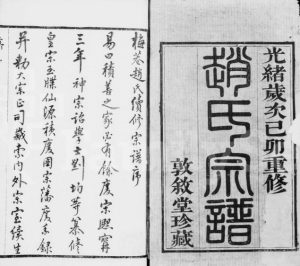 光緒歲次己卯重修
趙氏宗譜
敦敘堂珍藏
梅巷趙氏續修宗譜序
易曰積善之家必有餘慶宋熙甯
三年神宗詔學士劉均等纂修
皇宗玉牒仙源積慶圖宗藩慶系錄
并勅大宗正司歲索內外宗室續生